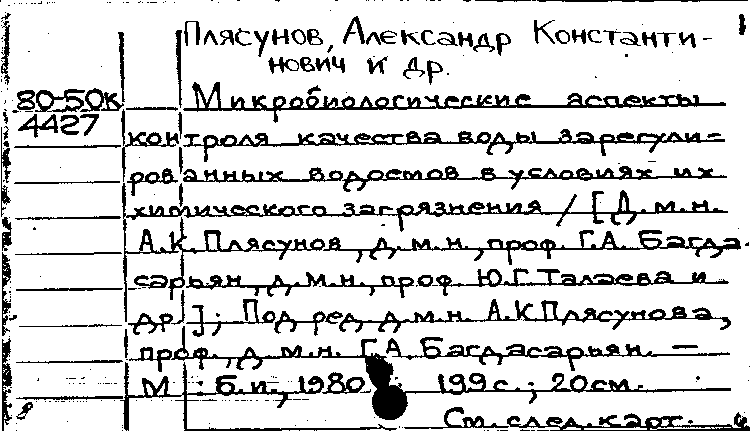 Плясунов, Александр Константи-
нович и др.
80-50к Микробиологические аспекты
4427 контроля качества воды зарегули-
рованных водоемов в условиях их
химического загрязнения / [Д.м.н.
А.К. Плясунов, д.м.н., проф. Г.А. Багда-
сарьян, д.м.н., проф. Ю.Г. Талаева и
др.]; Под ред. д.м.н. А.К Плясунова,
проф., д.м.н. Г.А. Багдасарьян. —
М : Б.и., 1980. 199с.; 20см.
См. след. карт.